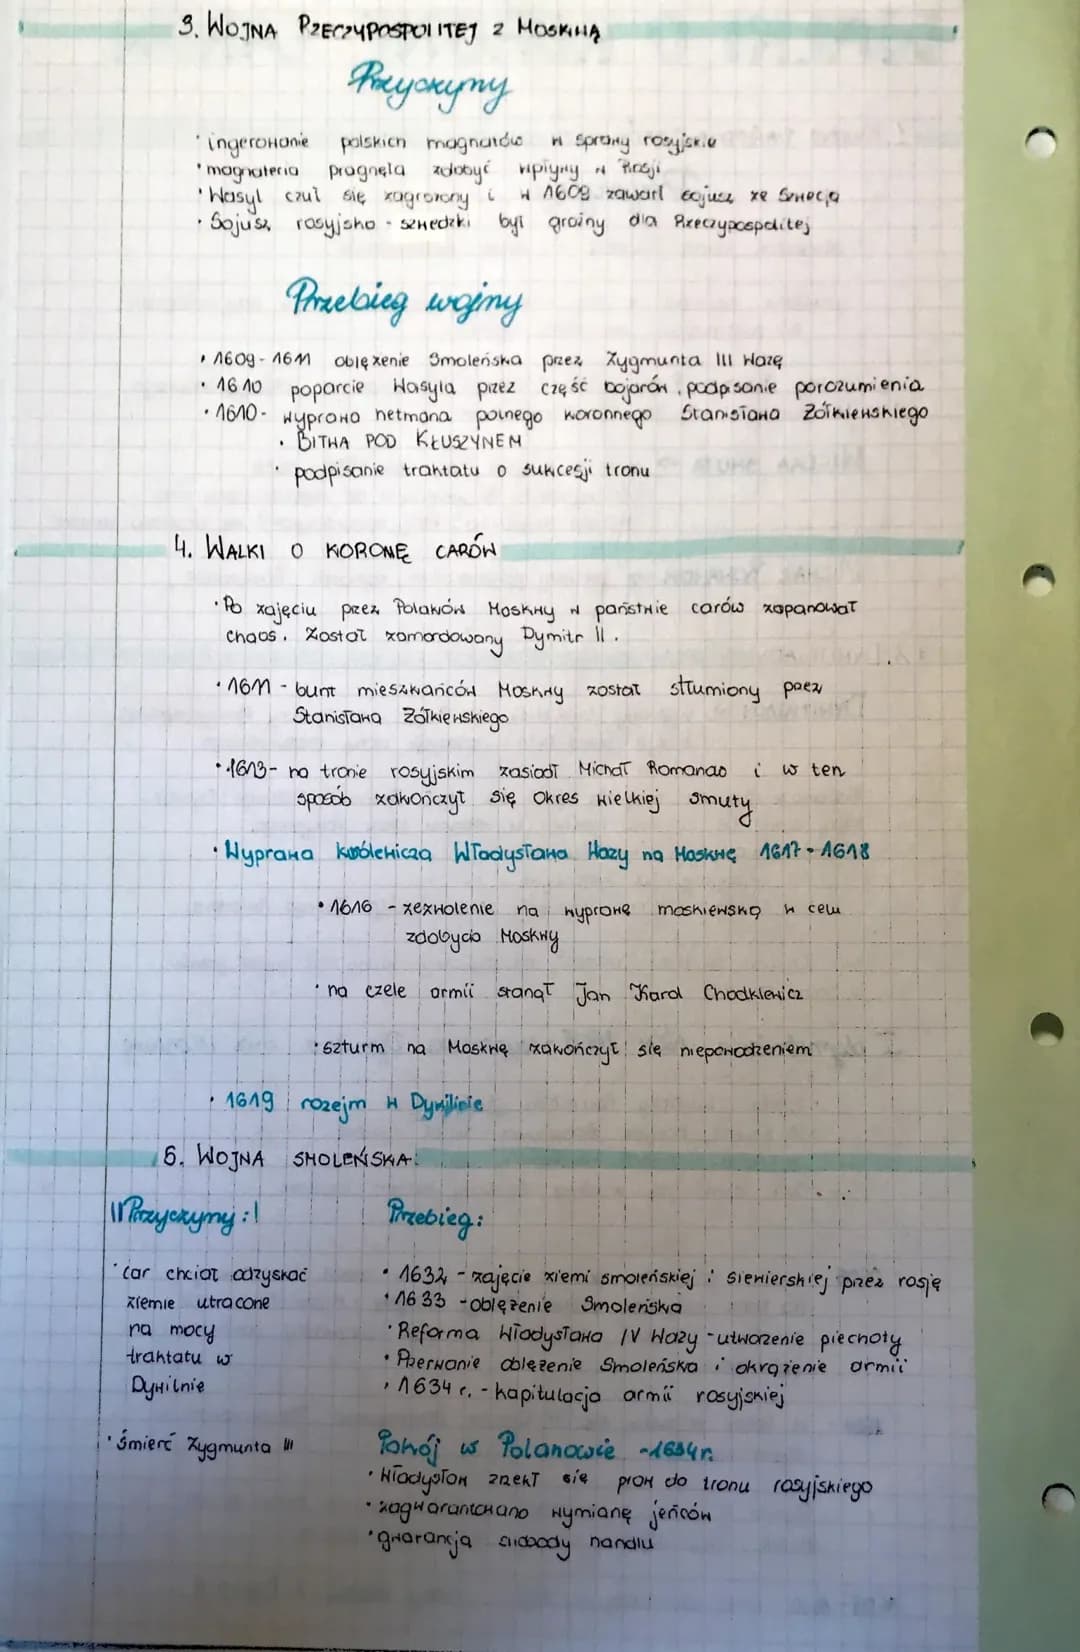 3. WOJNA RZECZYPOSPOLITEJ Z MOSKWĄ
Przyczyny
• ingerowanie polskich magnatów w sprawy rosyjskie
• magnateria pragnęła zdobyć wpływy w Rosji
• Wasyl czuł się zagrożony i w 1609 zawarł sojusz ze Szwecją
• Sojusz rosyjsko - szwedzki był groźny dla Rzeczypospolitej
Przebieg wojny
• 1609 - 1611 oblężenie Smoleńska przez Zygmunta III Wazę
• 1610 poparcie Wasyla przez część bojarów, podpisanie porozumienia
• 1610 - wyprawa hetmana polnego koronnego Stanisława Żółkiewskiego
• BITWA POD KŁUSZYNEM
• podpisanie traktatu o sukcesji tronu
4. WALKI O KORONĘ CARÓW
• Po zajęciu przez Polaków Moskwy w państwie carów zapanował
chaos. Został zamordowany Dymitr II.
• 1611 - bunt mieszkańców Moskwy został stłumiony przez
Stanisława Żółkiewskiego
• 1613 - na tronie rosyjskim zasiadł Michał Romanao i w ten
sposób zakończył się okres wielkiej smuty
• Wyprawa królewicza Władysława Wazy na Moskwę 1617 - 1618
• 1616 - zezwolenie na wyprawę moskiewską w celu
zdobycia Moskwy
• na czele armii stanął Jan Karol Chodkiewicz
• szturm na Moskwę zakończył się niepowodzeniem
• 1619 rozejm w Dywilinie
5. WOJNA SMOLEŃSKA
Przyczyny:
Przebieg:
• Car chciał odzyskać
ziemie utracone
na mocy
traktatu w
Dywilnie
• śmierć Zygmunta III
• 1632 - zajęcie ziemi smoleńskiej i siewierskiej przez rosję
• 1633 - oblężenie Smoleńska
• Reforma Władysława IV Wazy - utworzenie piechoty
• Przerwanie oblężenie Smoleńska i okrążenie armii
• 1634 r. - kapitulacja armii rosyjskiej
Pokój w Polanowie - 1634r.
• Władysław zrzekł się praw do tronu rosyjskiego
• zagwarantowano wymianę jeńców
• gwarancja swobody handlu